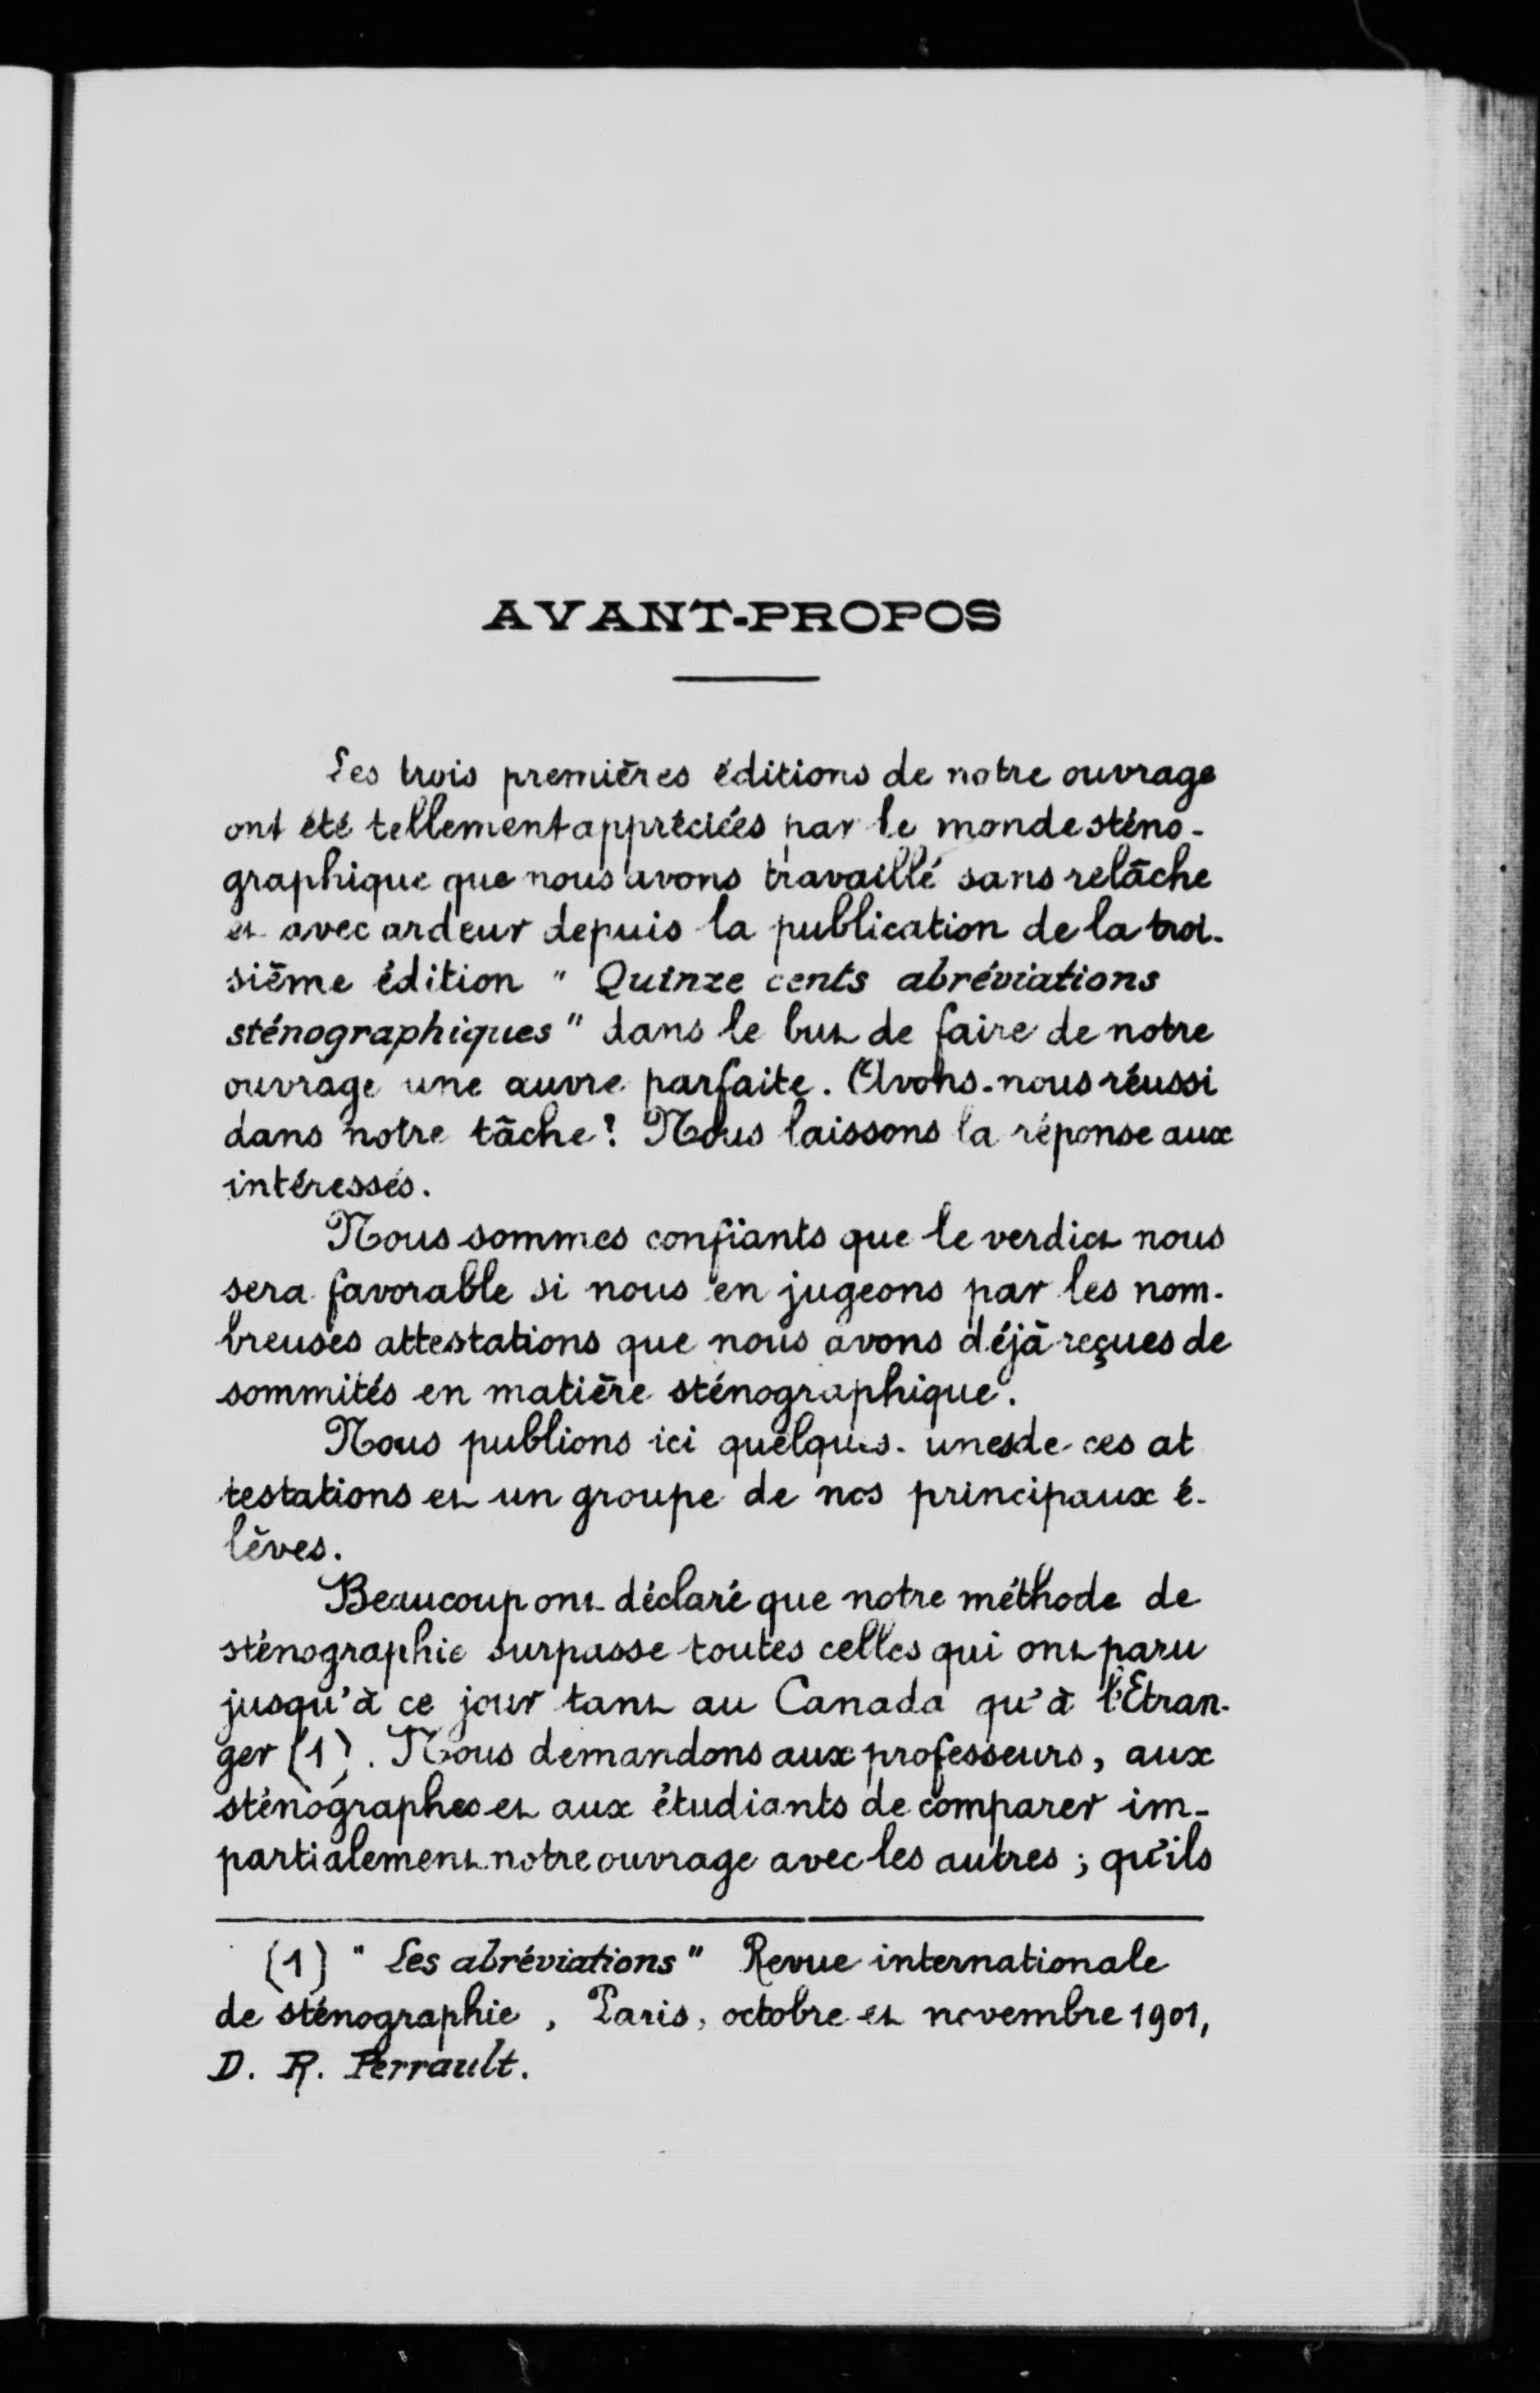 AVANT-PROPOS
Les trois premières éditions de notre ouvrage
ont été tellement appréciées par le monde sténo-
graphique que nous avons travaillé sans relâche
et avec ardeur depuis la publication de la troi-
sième édition " Quinze cents abréviations
sténographiques" dans le but de faire de notre
ouvrage une œuvre parfaite. Avons-nous réussi
dans notre tâche? Nous laissons la réponse aux
intéressés.
Nous sommes confiants que le verdict nous
sera favorable si nous en jugeons par les nom-
breuses attestations que nous avons déjà reçues de
sommités en matière sténographique.
Nous publions ici quelques-unes de ces at
testations et un groupe de nos principaux é-
lèves.
Beaucoup ont déclaré que notre méthode de
sténographie surpasse toutes celles qui ont paru
jusqu'à ce jour tant au Canada qu'à l'Etran-
ger (1). Nous demandons aux professeurs, aux
sténographes et aux étudiants de comparer im-
partialement notre ouvrage avec les autres ; qu'ils
(1) " Les abréviations" Revue internationale
de sténographie, Paris, octobre et novembre 1901,
D. R. Perrault.